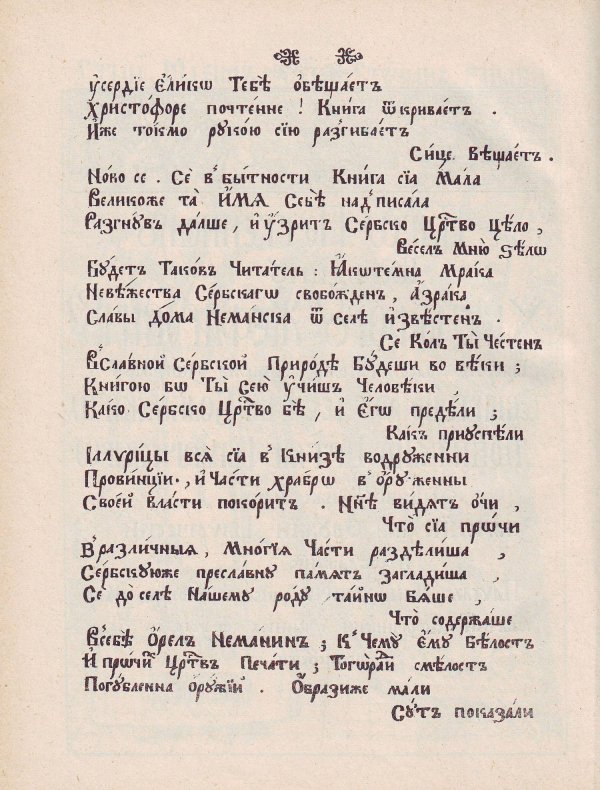 Ꙋ҆сердїе Е҆ликѡ Тебѣ ѻ҆бѣщаетъ
Христофоре почтенне ! Книга ѿкриваетъ .
И҆же токмо рукою сїю разгибаетъ
Сице Вѣщаетъ .
Ново се . Се в' бытности Книга сїа Мала
Великоже та И҆МЯ Себѣ над'писала
Разгнувъ далше , и ꙋ҆зритъ Се́рбско Црⷭ҇тво цѣло ,
Веселъ Мню̀ ѕѣлѡ
Будетъ Таковъ Читатель : Ꙗ҆кѡтемна Мрака
Невѣжества Се́рбскагѡ свобожден , а҆зрака
Славы дома Неманска ѿ селѣ и҆звѣстенъ .
Се Колъ Ты̀ Честенъ
В'славной Се́рбской Природѣ Будеши во вѣки ;
Книгою бѡ Ты̀ Сею ꙋ҆чишъ Человѣки ,
Како Се́рбско Црⷭ҇тво бѣ , и Е҆гѡ предѣли ;
Какъ приуспѣли
Іллурїцы вся сїа в' Книзѣ водруженни
Провинцїи , и Части храбрѡ в' ѻ҆руженны
Своей власти покоритъ . Нн҃ѣ видятъ ѻ҆чи ,
Что сїа прѡчи
В' различныя , Многїя Части раздѣлиша ,
Се́рбскуюже преславну память загладиша ,
Се до селѣ Нашему роду тайнѡ Бяше ,
Что содержаше
В'себѣ Ѻ҆релъ Неманинъ ; К' Чему Е҆му Бѣлость
И прѡчи́ Црⷭ҇твъ Печати ; Тогѡрадї смѣлость
Погубленна ѻ҆рꙋжїй . Ѻ҆бразиже мали
Сꙋть показали